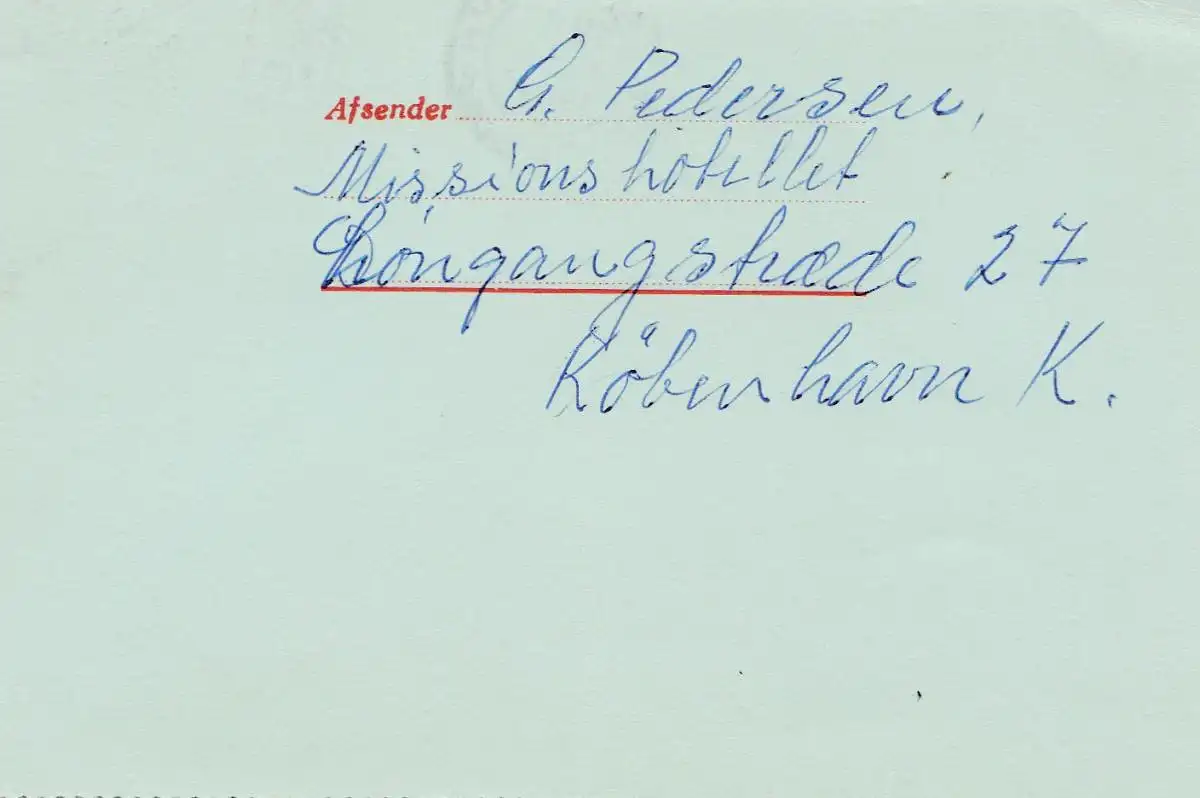 Afsender G. Pedersen,
Missionshotellet
Löngangstræde 27
Köbenhavn K.